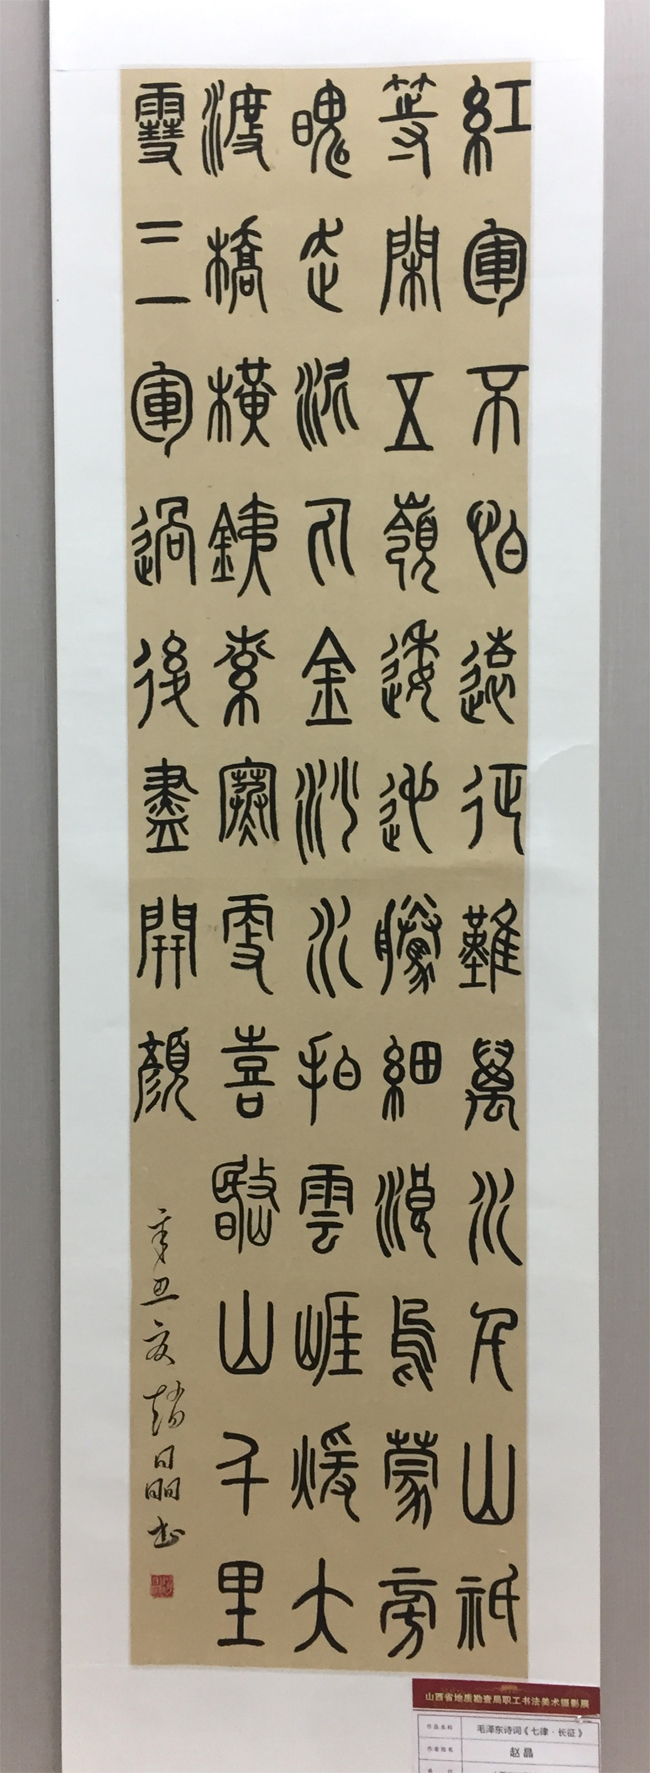 紅軍不怕遠征難萬水千山祇
等閑五嶺逶迤騰細浪烏蒙旁
魄走泥丸金沙水拍雲崖暖大
渡橋橫銕索寒更喜岷山千里
雪三軍過後盡開顏
辛丑夏趙晶書
山西省地质勘查局职工书法美术摄影展
作品名称 毛泽东诗词《七律·长征》
作者姓名 赵晶